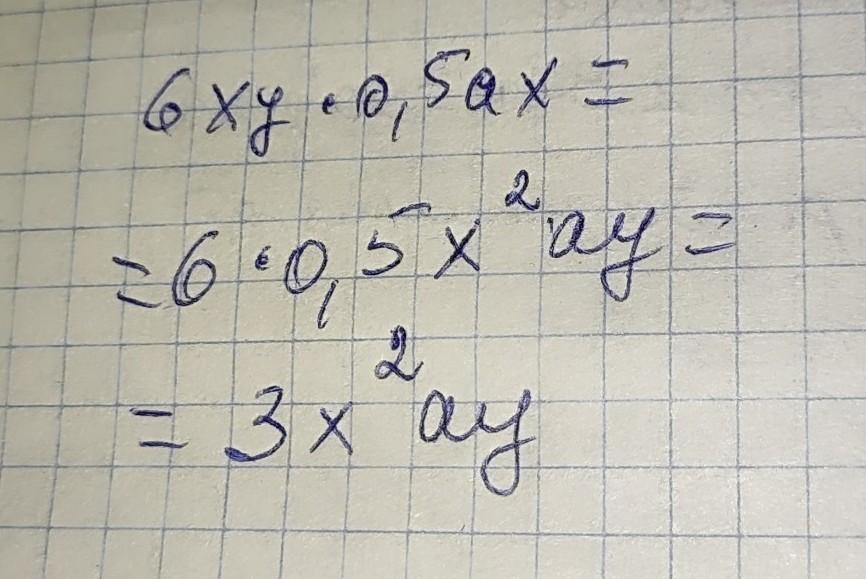 6xy·0,5ax=
=6·0,5x²ay=
=3x²ay